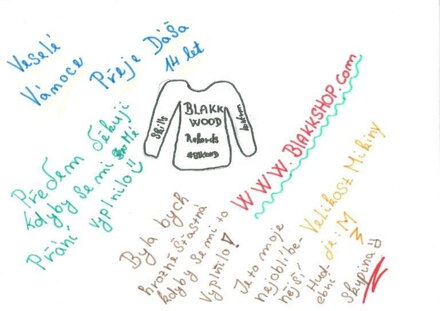 Veselé
Vánoce
Přeje Dáša
14 let
BLAKK
WOOD
Rekords
Skills
Předem děkuji
kdyby se mi
Přání vyplnilo
WWW.BLAKKSHOP.com
Byla bych
hrozně šťastná
kdyby se mi to
vyplnilo!
Je to moje
nejoblíbe-
nější
Hud-
ební
skupina
Velikost Mikiny
je: M